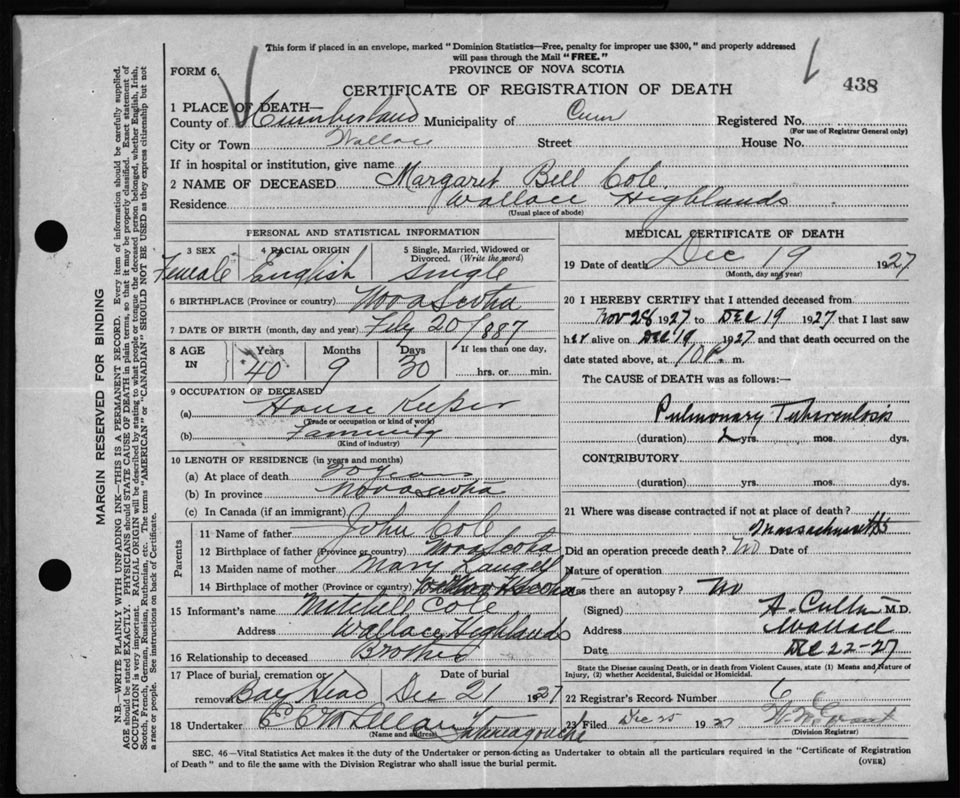 This form if placed in an envelope, marked "Dominion Statistics—Free, penalty for improper use $300," and properly addressed
will pass through the Mail "FREE."
FORM 6.
PROVINCE OF NOVA SCOTIA
438
CERTIFICATE OF REGISTRATION OF DEATH
1 PLACE OF DEATH—
County of Cumberland Municipality of Cum Registered No.
(For use of Registrar General only)
City or Town Wallace Street House No.
If in hospital or institution, give name
2 NAME OF DECEASED Margaret Bell Cole
Residence Wallace Highlands
(Usual place of abode)
PERSONAL AND STATISTICAL INFORMATION
3 SEX 4 RACIAL ORIGIN 5 Single, Married, Widowed or
Divorced. (Write the word)
Female English Single
6 BIRTHPLACE (Province or country) Nova Scotia
7 DATE OF BIRTH (month, day and year) Feby 20/1887
8 AGE IN Years Months Days If less than one day,
40 9 30 hrs. or min.
9 OCCUPATION OF DECEASED
(a) House Keeper
(Trade or occupation or kind of work)
(b)
(Kind of industry)
10 LENGTH OF RESIDENCE (in years and months)
(a) At place of death 20 years
(b) In province Nova Scotia
(c) In Canada (if an immigrant)
Parents
11 Name of father John Cole
12 Birthplace of father (Province or country) Nova Scotia
13 Maiden name of mother Mary
14 Birthplace of mother (Province or country)
15 Informant's name Mitchell Cole
Address Wallace Highlands
16 Relationship to deceased Brother
17 Place of burial, cremation or removal Date of burial
Bay Head Dec 21 1927
18 Undertaker Tatamagouche
(Name and address)
MEDICAL CERTIFICATE OF DEATH
19 Date of death Dec 19 1927
(Month, day and year)
20 I HEREBY CERTIFY that I attended deceased from
Nov 28 1927 to Dec 19 1927 that I last saw
her alive on Dec 19 1927 and that death occurred on the
date stated above, at 10 P. m.
The CAUSE of DEATH was as follows:
Pulmonary Tuberculosis
(duration) 2 yrs. mos. dys.
CONTRIBUTORY
(duration) yrs. mos. dys.
21 Where was disease contracted if not at place of death?
Massachusetts
Did an operation precede death? No Date of
Nature of operation
Was there an autopsy? No
(Signed) M.D.
Address Wallace
Date Dec 22-27
State the Disease causing Death, or in death from Violent Causes, state (1) Means and Nature of
Injury, (2) whether Accidental, Suicidal or Homicidal.
22 Registrar's Record Number 6
23 Filed Dec 19
(Division Registrar)
SEC. 46—Vital Statistics Act makes it the duty of the Undertaker or person acting as Undertaker to obtain all the particulars required in the "Certificate of Registration
of Death" and to file the same with the Division Registrar who shall issue the burial permit. (OVER)
MARGIN RESERVED FOR BINDING
N.B.—WRITE PLAINLY WITH UNFADING INK—THIS IS A PERMANENT RECORD. Every item of information should be carefully supplied.
AGE should be stated EXACTLY. PHYSICIANS should STATE CAUSE OF DEATH in plain terms, so that it may be properly classified. Exact statement of
OCCUPATION is very important. RACIAL ORIGIN will be described by stating to what people or tongue the deceased person belonged, whether English, Irish,
Scotch, French, German, Russian, Ruthenian, etc. The terms "AMERICAN" or "CANADIAN" SHOULD NOT BE USED as they express citizenship but not
a race or people. See instructions on back of Certificate.